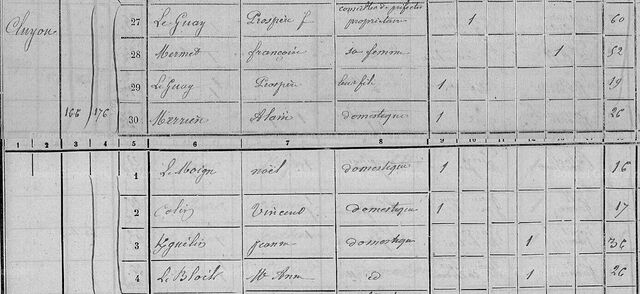 27 Le Guay Prospère f propriétaire 1 60
Cluyon 28 Mermet françoise sa femme 1 52
29 Le Guay Prosper leur fils 1 19
166 176 30 Merrien Alain domestique 1 26
1 2 3 4 5 6 7 8 9
1 Le Moign noël domestique 1 16
2 Colin Vincent domestique 1 17
3 jeanne domestique 1 36
4 Le Bloch Me Anne id 1 26